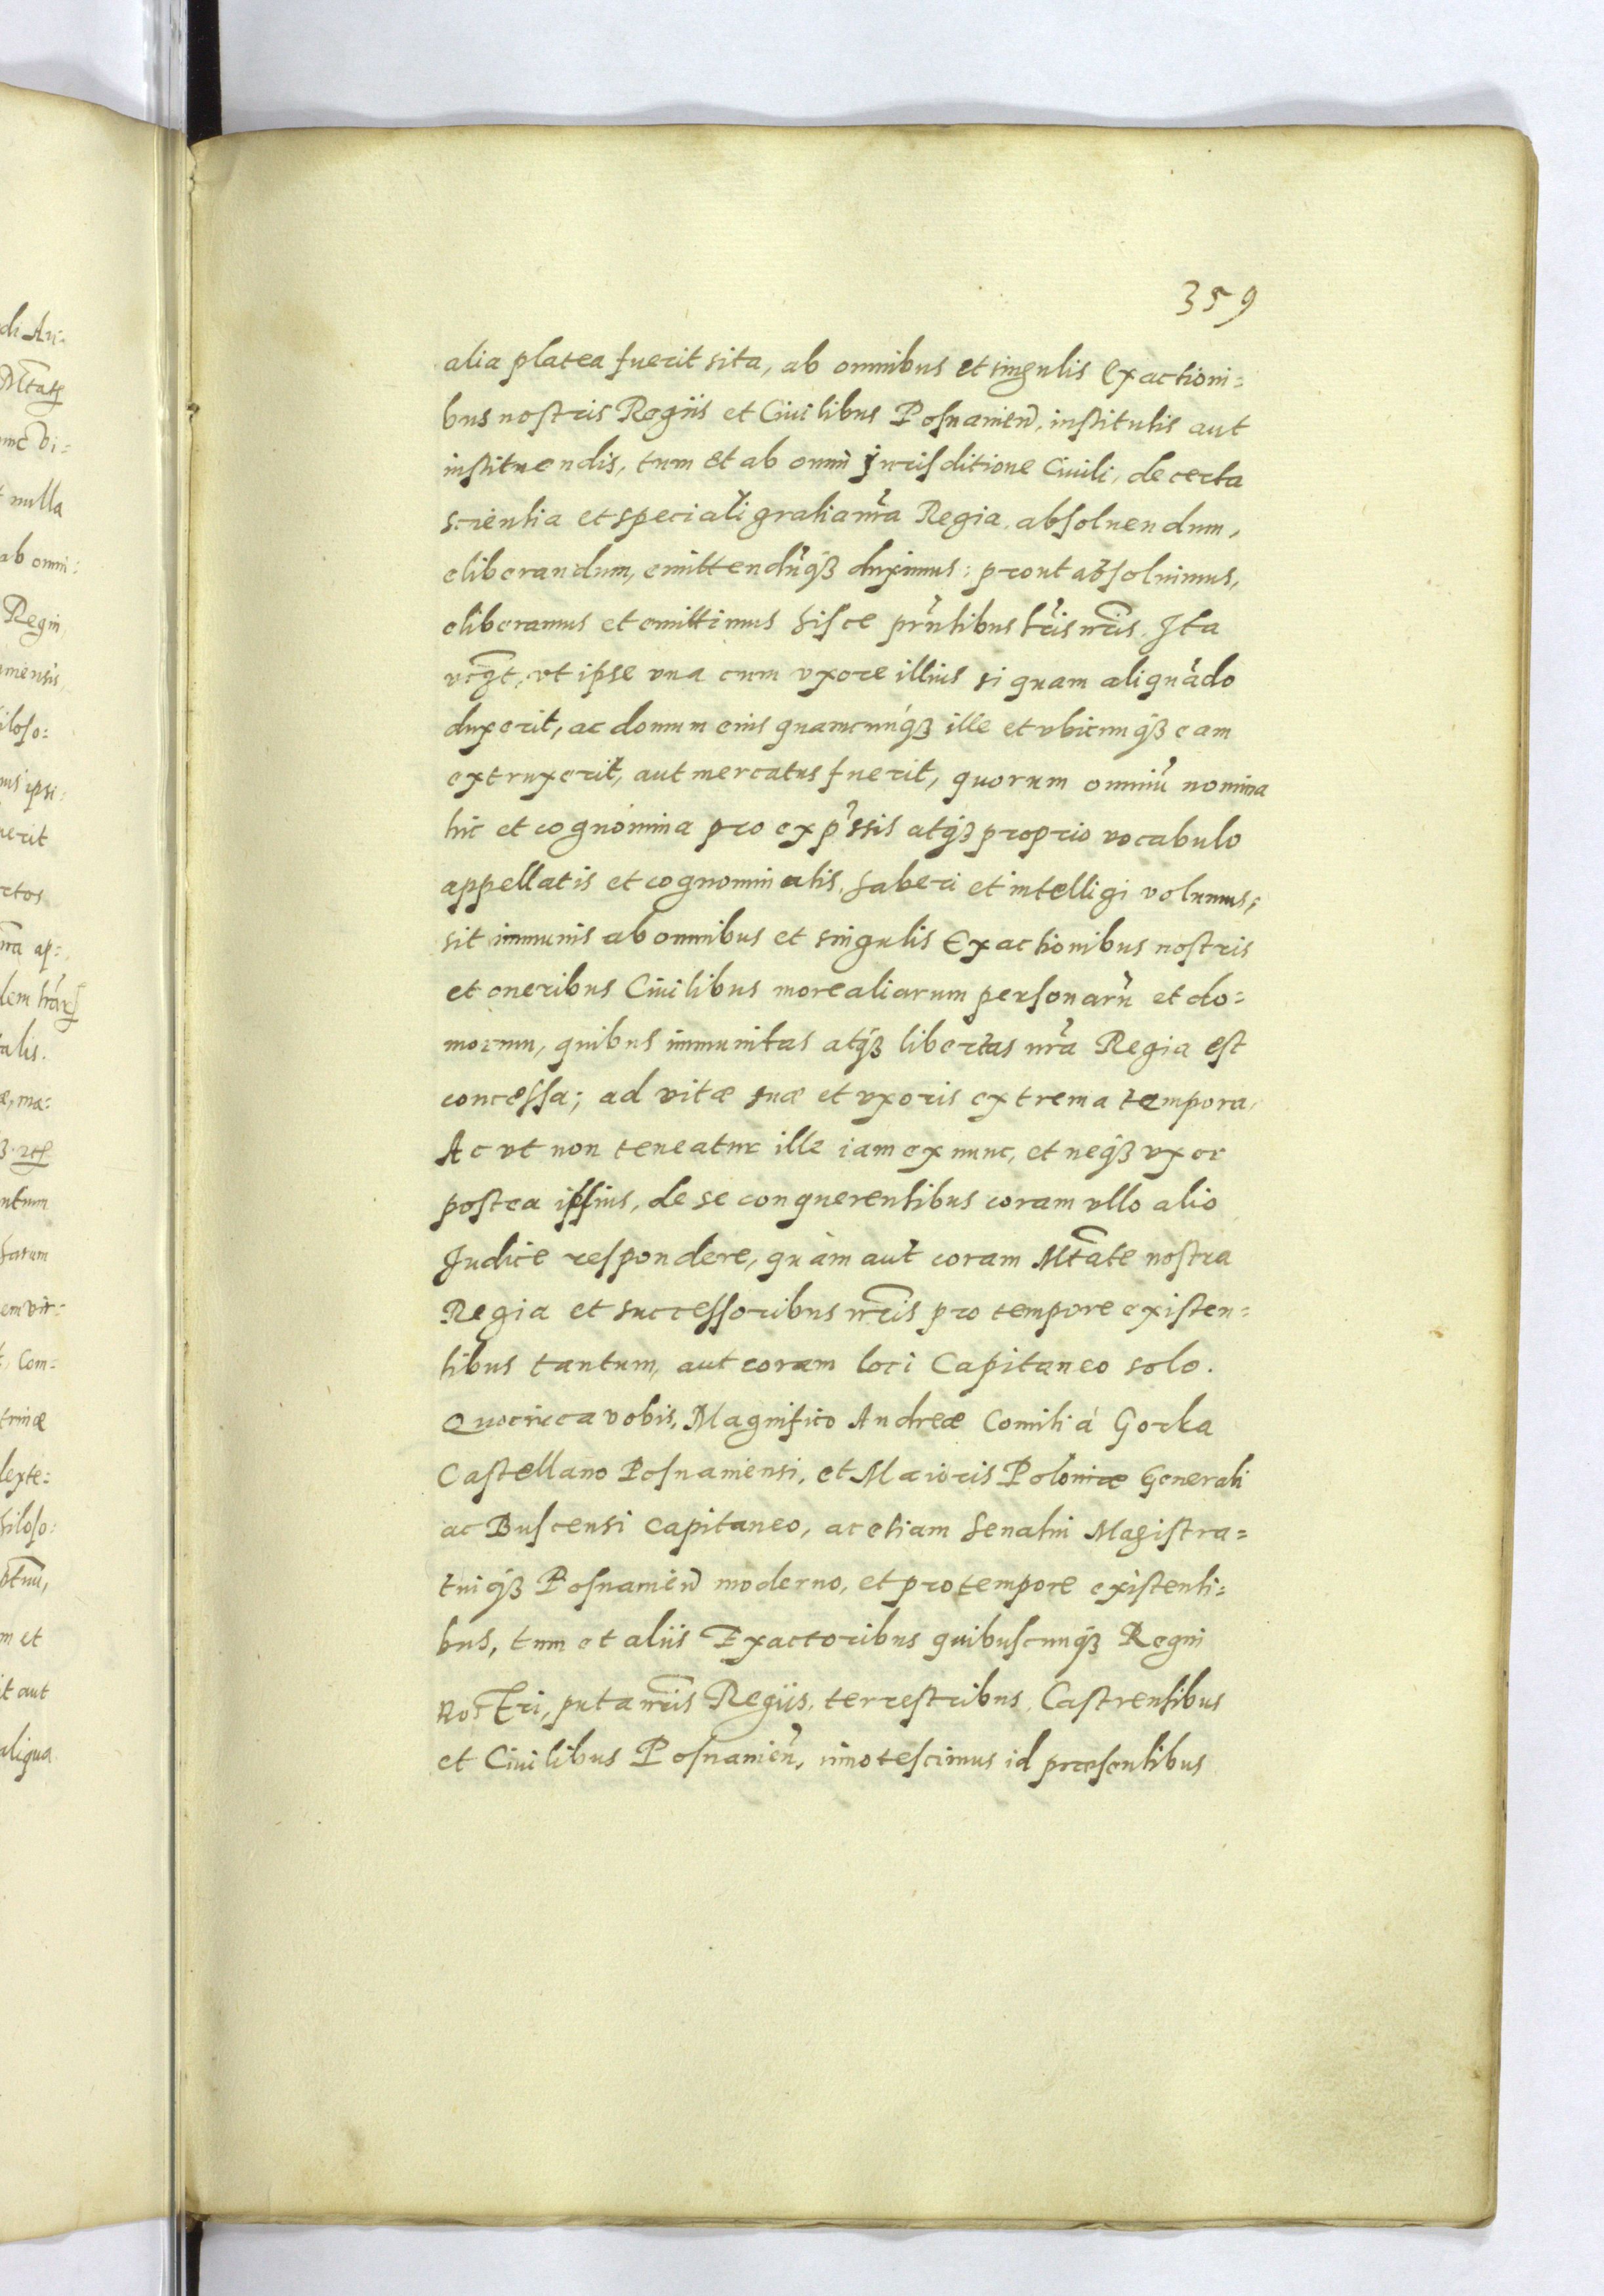 359
alia platea fuerit sita, ab omnibus et singulis Exactioni=
bus nostris Regiis et Ciuilibus Posnamień, institutis aut
instituendis, tum et ab omni jurisditione Ciuili, de certa
scientia et speciali gratia nr̃a Regia absoluendum,
eliberandum, emittendũq́ȝ duximus: prout absoluimus,
eliberamus et emittimus hisce pñtibus l̃ris nr̃is. Ita
ut ipse vna cum vxore illius si quam aliquãdo
duxerit, ac domum eius quamcunq́ȝ ille et vbicunq́ȝ eam
extruxerit, aut mercatus fuerit, quorum omniũ nomina
hic et cognomina pro exp̃ssis atq́ȝ proprio vocabulo
appellatis et cognominatis, haberi et intelligi volumus;
sit immunis ab omnibus et singulis Exactionibus nostris
et oneribus Ciuilibus more aliarum personarũ et do=
morum, quibus immunitas atq́ȝ libertas nr̃a Regia est
concessa; ad vitæ suæ et vxoris extrema tempora.
Ac vt non teneatur ille iam ex nunc, et neq́ȝ vxor
postea ipsius, de se conquerentibus coram vllo alio
Judice respondere, quàm aut coram Mt̃ate nostra
Regia et successoribus nr̃is pro tempore existen=
tibus tantum, aut coram loci Capitaneo solo.
Quocirca vobis, Magnifico Andreæ Comiti á Gorka
Castellano Posnaniensi, et Maioris Poloniæ Generali
ac Buscensi Capitaneo, ac etiam Senatui Magistra=
tuiq́ȝ Posnanień moderno, et pro tempore existenti=
bus, tum et aliis Exactoribus quibuscunq́ȝ Regni
Nostri, puta nr̃is Regiis, terrestribus, Castrensibus
et Ciuilibus Posnanień, innotescimus id præsentibus